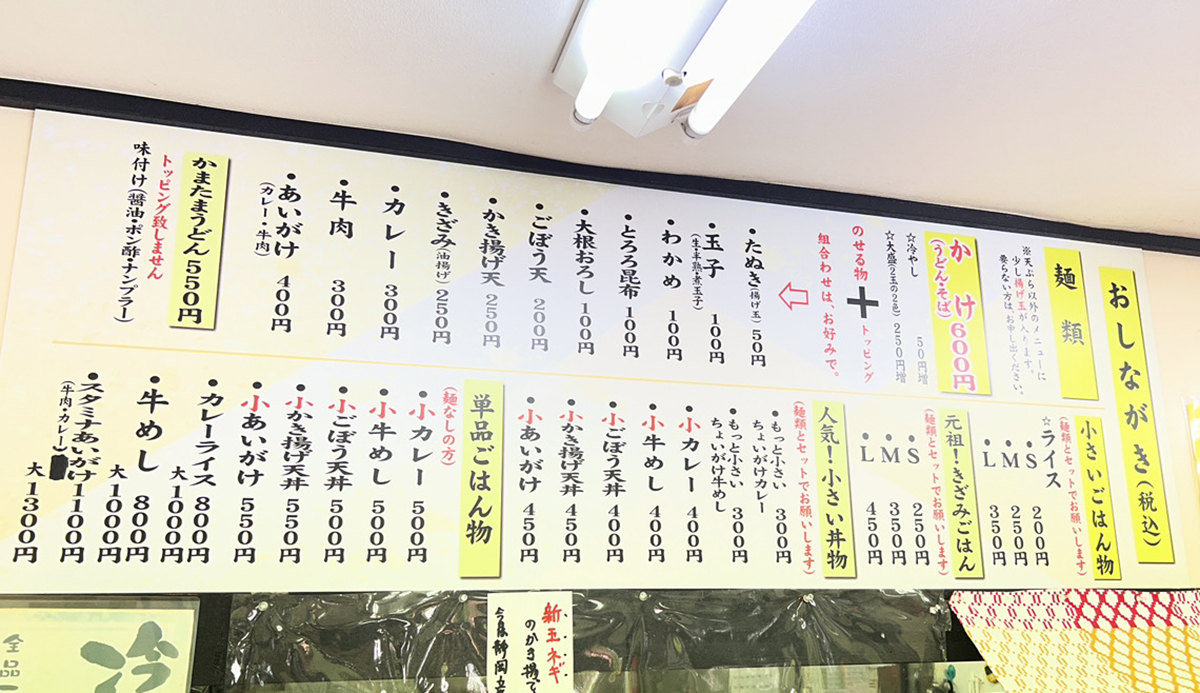 おしながき(税込)
麺類
※天ぷら以外のメニューに
少し揚げ玉が入ります。
要らない方は、お申し出ください。
かけ600円
(うどん・そば)
☆冷やし 50円増
☆大盛(2玉の2色) 250円増
のせる物+トッピング
組合わせは、お好みで。
・たぬき(揚げ玉) 50円
・玉子 100円
(生・半熟・煮玉子)
・わかめ 100円
・とろろ昆布 100円
・大根おろし 100円
・ごぼう天 200円
・かき揚げ天 250円
・きざみ(油揚げ) 250円
・カレー 300円
・牛肉 300円
・あいがけ 400円
(カレー・牛肉)
かまたまうどん550円
トッピング致しません
味付け(醤油・ポン酢・ナンプラー)
小さいごはん物
(麺類とセットでお願いします)
☆ライス
・S 200円
・M 250円
・L 350円
元祖!きざみごはん
(麺類とセットでお願いします)
・S 250円
・M 350円
・L 450円
人気!小さい丼物
(麺類とセットでお願いします)
・もっと小さい
ちょいがけカレー 300円
・もっと小さい
ちょいがけ牛めし 300円
・小カレー 400円
・小牛めし 400円
・小ごぼう天丼 400円
・小かき揚げ天丼 450円
・小あいがけ 450円
単品ごはん物
(麺なしの方)
・小カレー 500円
・小牛めし 500円
・小ごぼう天丼 500円
・小かき揚げ天丼 550円
・小あいがけ 550円
・カレーライス 800円
大1000円
・牛めし 800円
大1000円
・スタミナあいがけ 1100円
(牛肉・カレー)
大1300円
新玉ネギ
のかき揚で
冷
全品